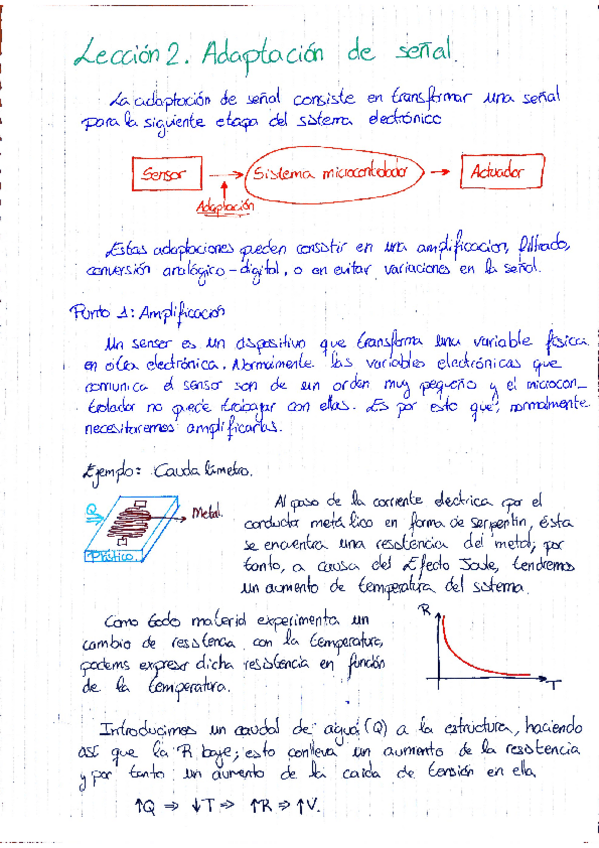 Lección 2. Adaptación de señal.
La adaptación de señal consiste en transformar una señal
para la siguiente etapa del sistema electrónico
Sensor
Sistema microcontrolador
Actuador
Adaptación
Estas adaptaciones pueden consistir en una amplificacion, filtrado,
conversión analógico-digital, o en evitar variaciones en la señal.
Punto 1: Amplificación
Un sensor es un dispositivo que transforma una variable física
en otra electrónica. Normalmente las variables electrónicas que
comunica el sensor son de un orden muy pequeño y el microcon-
trolador no puede trabajar con ellas. Es por esto que, normalmente
necesitaremos amplificarlas.
Ejemplo: Caudalímetro.
Q
Metal
Plástico.
Al paso de la corriente eléctrica por el
conductor metálico en forma de serpentín, ésta
se encuentra una resistencia del metal; por
tanto, a causa del Efecto Joule, tendremos
un aumento de temperatura del sistema.
Como todo material experimenta un
cambio de resistencia con la temperatura,
podems expresar dicha resistencia en función
de la temperatura.
R
T
Introducimos un caudal de agua (Q) a la estructura, haciendo
así que la R baje; esto conlleva un aumento de la resistencia
y por tanto un aumento de la caida de tensión en ella
↑Q ⇒ ↓T ⇒ ↑R ⇒ ↑V.